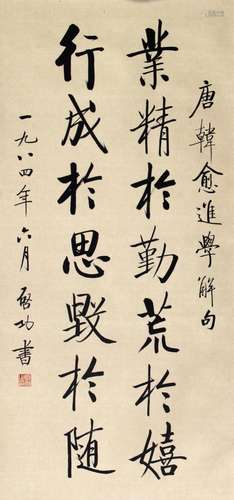 唐韓愈進學解句
業精於勤荒於嬉
行成於思毀於随
一九八四年六月啟功書